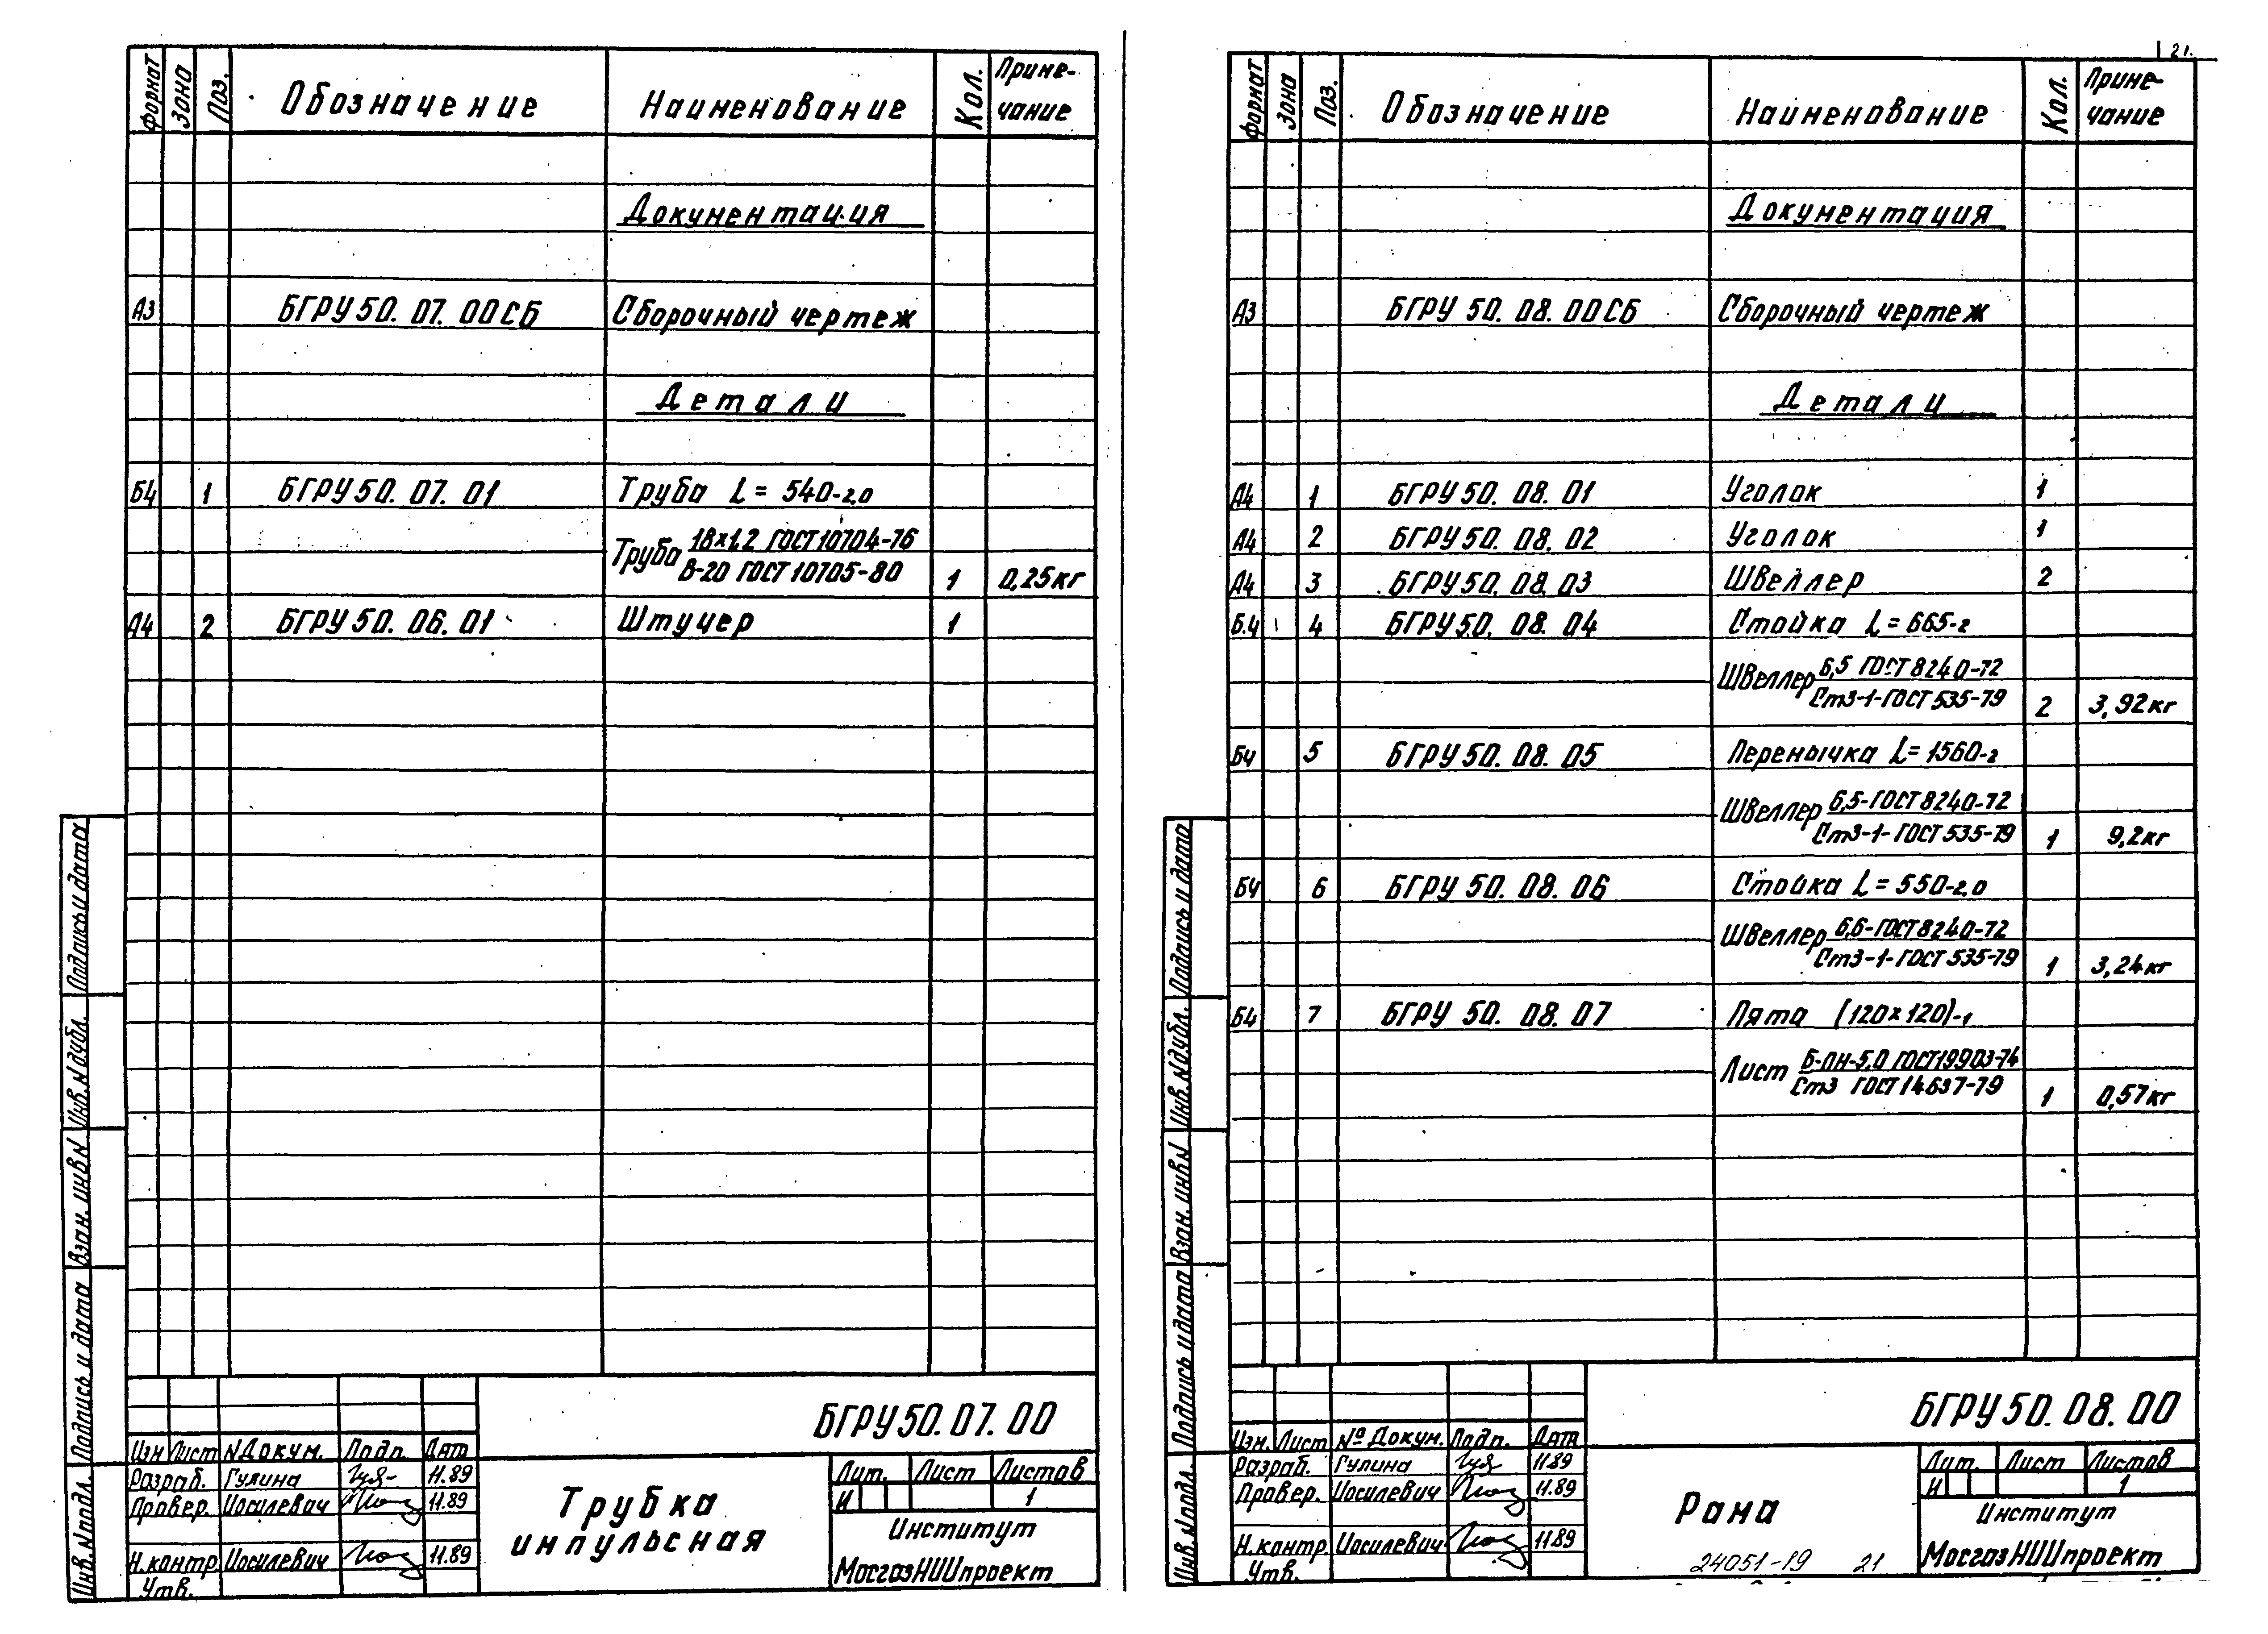 Формат Зона Поз. Обозначение Наименование Кол. Приме-
чание
Документация
А3 БГРУ50.07.00СБ Сборочный чертеж
Детали
Б4 1 БГРУ50.07.01 Труба L= 540-2,0
Труба 18×1,2 ГОСТ 10704-76
В-20 ГОСТ 10705-80 1 0,25кг
А4 2 БГРУ50.06.01 Штуцер 1
Подпись и дата
Инв.N дубл.
Взам. инв N
Подпись и дата
Инв.N подл.
Изм Лист N Докум. Подп. Дат
Разраб. Гулина 11.89
Провер. Иосилевич 11.89
Н.контр. Иосилевич 11.89
Утв.
БГРУ50.07.00
Трубка
импульсная
Лит. Лист Листов
И 1
Институт
МосгазНИИпроект
21.
Формат Зона Поз. Обозначение Наименование Кол. Приме-
чание
Документация
А3 БГРУ 50.08.00СБ Сборочный чертеж
Детали
А4 1 БГРУ50.08.01 Уголок 1
А4 2 БГРУ50.08.02 Уголок 1
А4 3 БГРУ50.08.03 Швеллер 2
Б.4 4 БГРУ50.08.04 Стойка L= 665-2
Швеллер 6,5 ГОСТ 8240-72
Ст3-1-ГОСТ 535-79 2 3,92кг
Б4 5 БГРУ 50.08.05 Перемычка L= 1560-2
Швеллер 6,5-ГОСТ 8240-72
Ст3-1-ГОСТ 535-79 1 9,2кг
Б4 6 БГРУ 50.08.06 Стойка L= 550-2,0
Швеллер 6,6-ГОСТ 8240-72
Ст3-1-ГОСТ 535-79 1 3,24кг
Б4 7 БГРУ 50.08.07 Пята (120×120)-1
Лист Б-ПН-5,0 ГОСТ 19903-74
Ст3 ГОСТ 14637-79 1 0,57кг
Подпись и дата
Инв.N дубл.
Взам. инв N
Подпись и дата
Инв.N подл.
Изм. Лист № Докум. Подп. Дат
Разраб. Гулина 11.89
Провер. Иосилевич 11.89
Н.контр. Иосилевич 11.89
Утв.
БГРУ50.08.00
Рама
Лит. Лист Листов
И 1
Институт
МосгазНИИпроект
24051-19 21